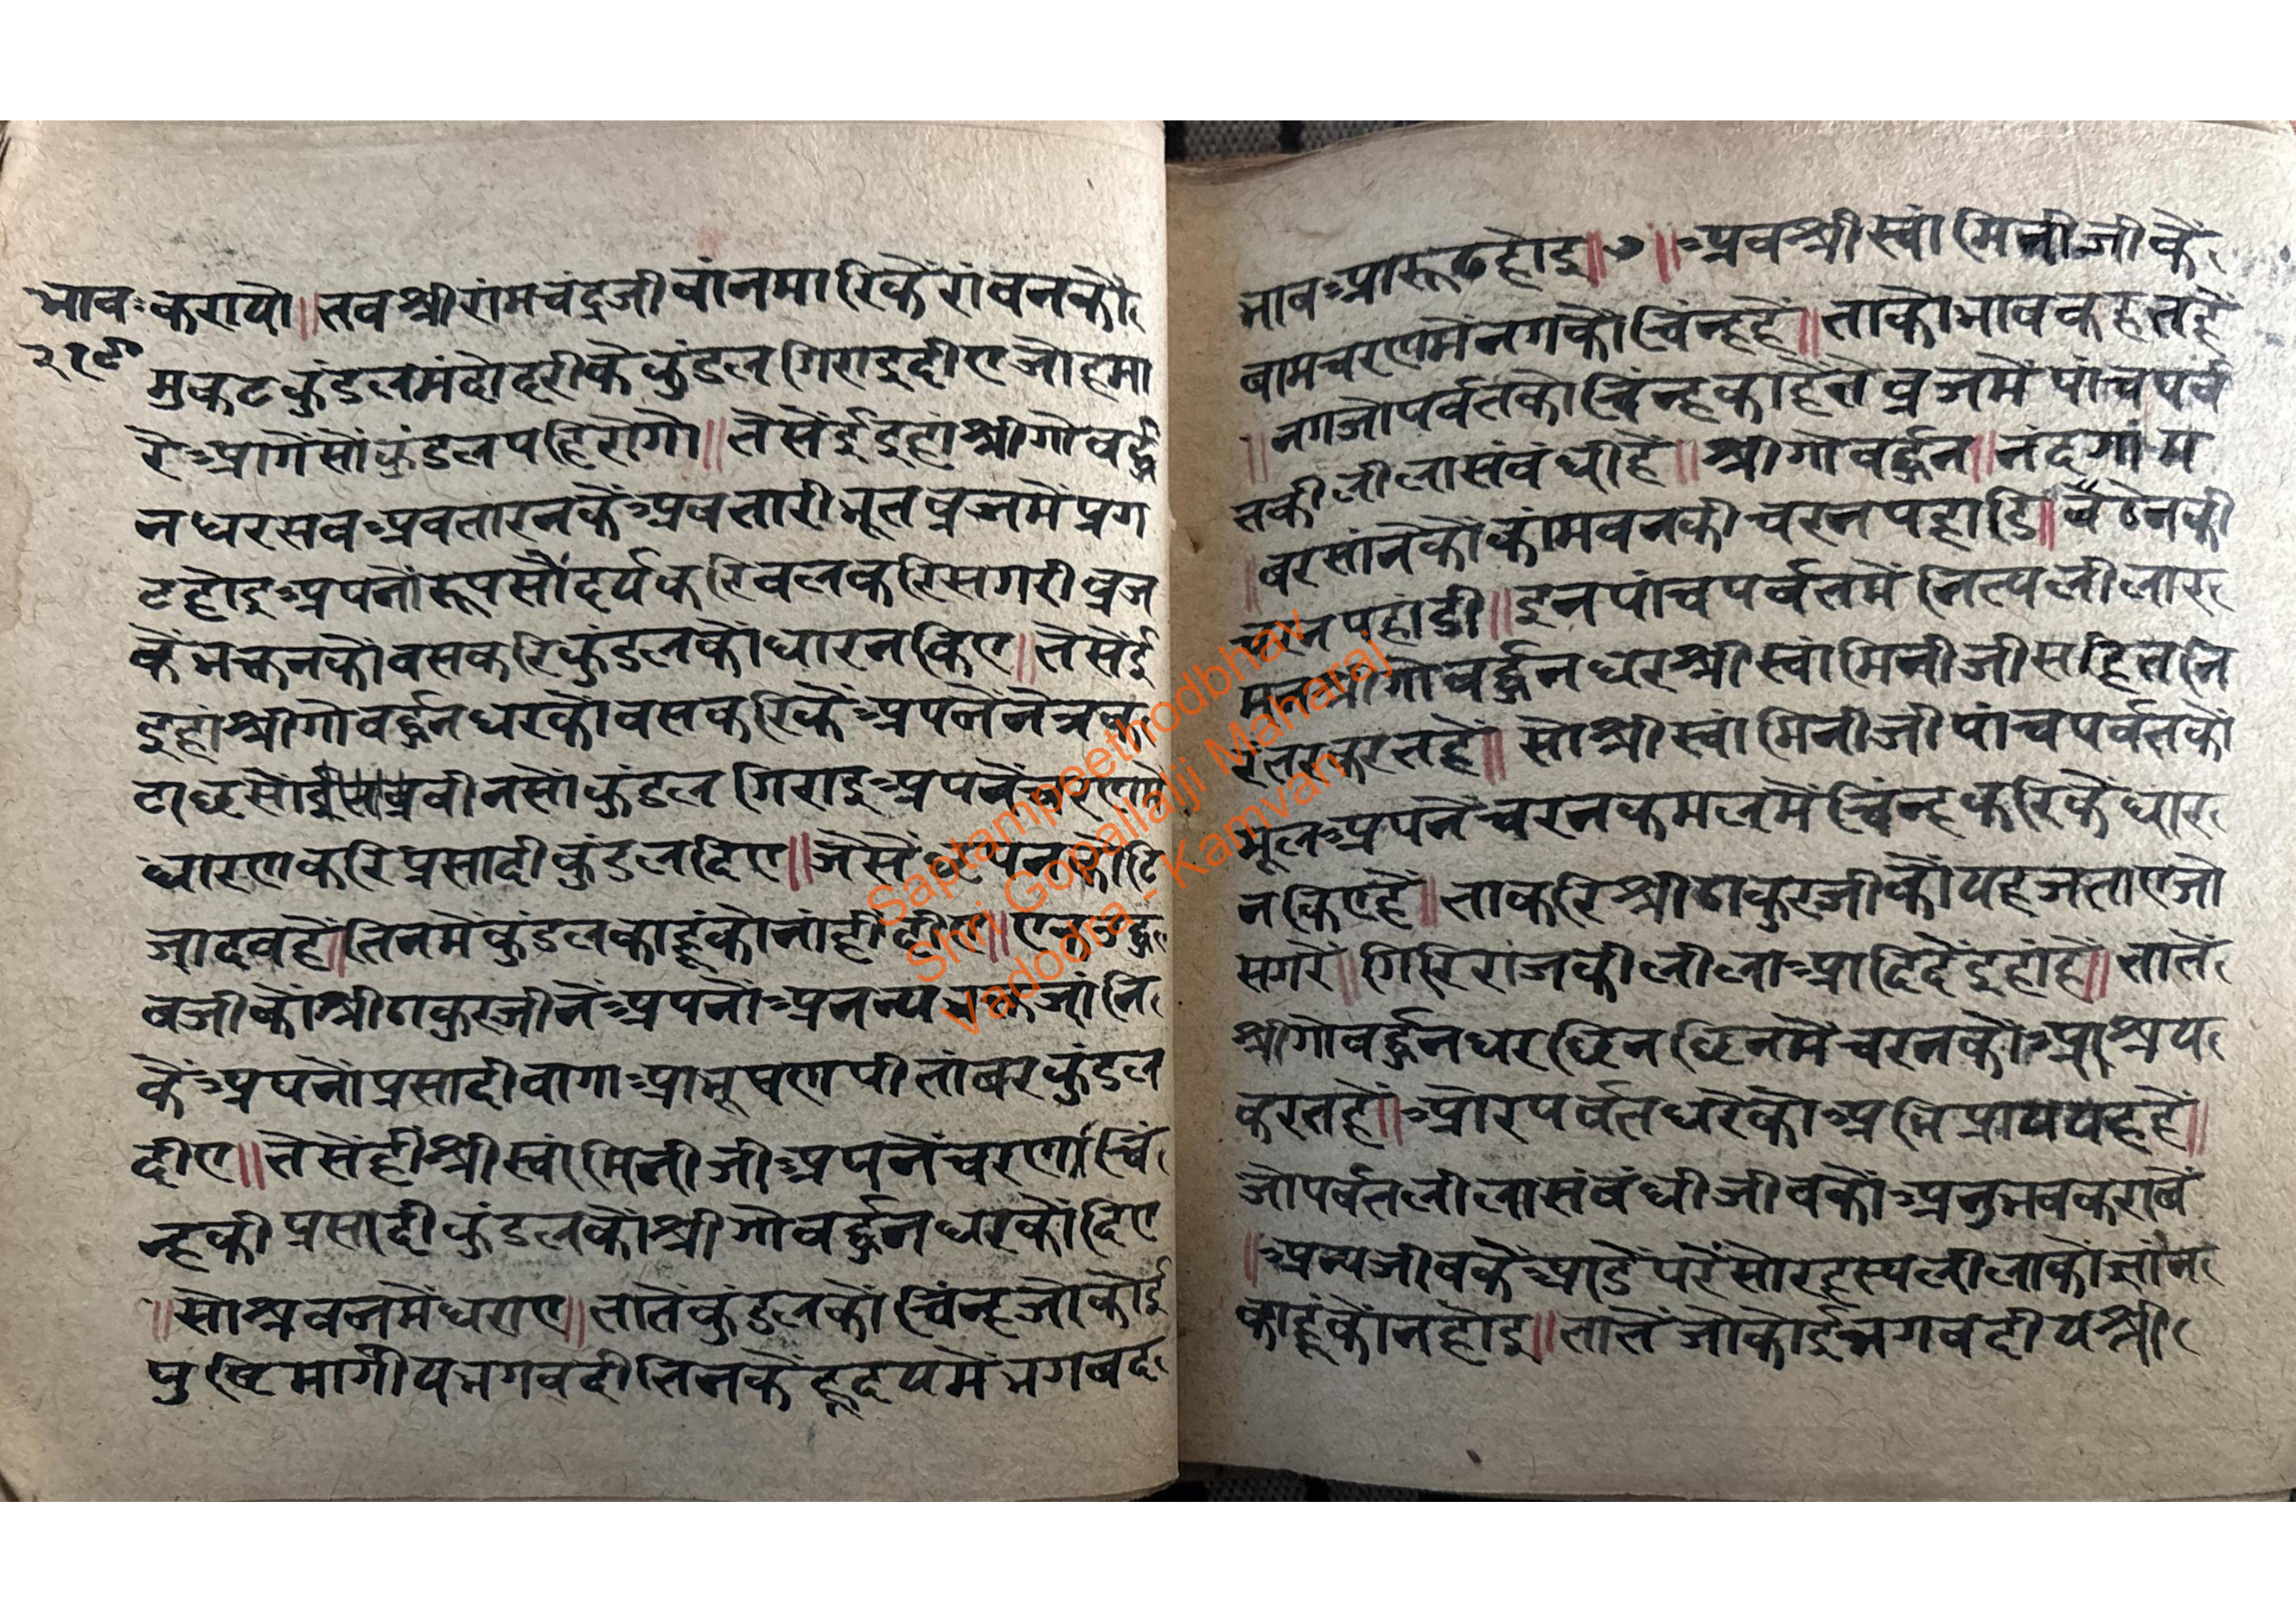 भाव
२१९
करायौ॥तवश्रीरांमचंद्रजीवांनमारिकैंरांवनकौं
मुकटकुंडलमंदोदरीकेकुंडलगिराइदीएजोहमा
रेआगेंसोंकुंडलपहिरोगो॥तैसेंईइहांश्रीगोवर्द्ध
नधरसवअवतारनकेंअवतारीभूतव्रजमेंप्रग
टहोइअपनोंरूपसौंदर्यकरिवलकरिसगरीव्रज
केंभक्तनकौंवसकरिकुंडलकोंधारनकिए॥तैसेंई
इहांश्रीगोवर्द्धनधरकौंवसकरिकैंअपनेंनेत्रक
टाछसों वीनसोंकुंडलगिराइअपनें
धारणकरिप्रसादीकुंडलदिए॥जैसें
जादवहैं॥तिनमेंकुंडलकाहूंकोनांहींदीए॥एकउद्ध
वजीकोंश्रीठाकुरजीनेंअपनोंअनन्य जांनि
कैंअपनोंप्रसादीवागाआभूषणपीतांबरकुंडल
दीए॥तैसेंहींश्रीस्वांमिनीजीअपनेंचरणचिं
न्हकीप्रसादीकुंडलकोंश्रीगोवर्द्धनधरकोंदिए
॥सोश्रवनमेंधराए॥तातेंकुंडलकोंचिंन्हजोकोई
पुष्टिमार्गीयभगवदीतिनकेंहृदयमेंभगवद
भावआरूढहोइ॥७॥अवश्रीस्वांमिनीजीकें
बामचरणमेंनगकोंचिंन्हहैं॥ताकोभावकहतहैं
॥नगजोपर्वतकोचिंन्हकाहेतेंव्रजमेंपांचपर्व
तकीलीलासंवंधीहैं॥श्रीगोवर्द्धन॥नंदगांम
॥बरसांनेकोकांमवनकीचरनपहाडि॥बेठेनकी
चरनपहांडी॥इनपांचपर्वतमेंनित्यलीलार
श्रीगोवर्द्धनधरश्रीस्वांमिनीजीसहितनि
करतहैं॥सोश्रीस्वांमिनीजीपांचपर्वतकों
मूलअपनेंचरनकमलमेंचिंन्हकरिकैंधार
नकिएहैं॥ताकरिश्रीठाकुरजीकोंयहजताएजो
सगरे॥गिरिराजकीलीलाआदिदेंइहांहैं॥तातें
श्रीगोवर्द्धनधरछिनछिनमेंचरनकोंआश्रय
करतहैं॥ओरपर्वतधरेकोअभिप्राययहहैं॥
जोपर्वतलीलासंबंधीजीवकोंअनुभवकरावें
॥अन्यजीवकेंआडेंपरेंसोरहस्यलीलाकोंज्ञांन
काहूंकोंनहोइ॥तातेंजोकोईभगवदीयश्री